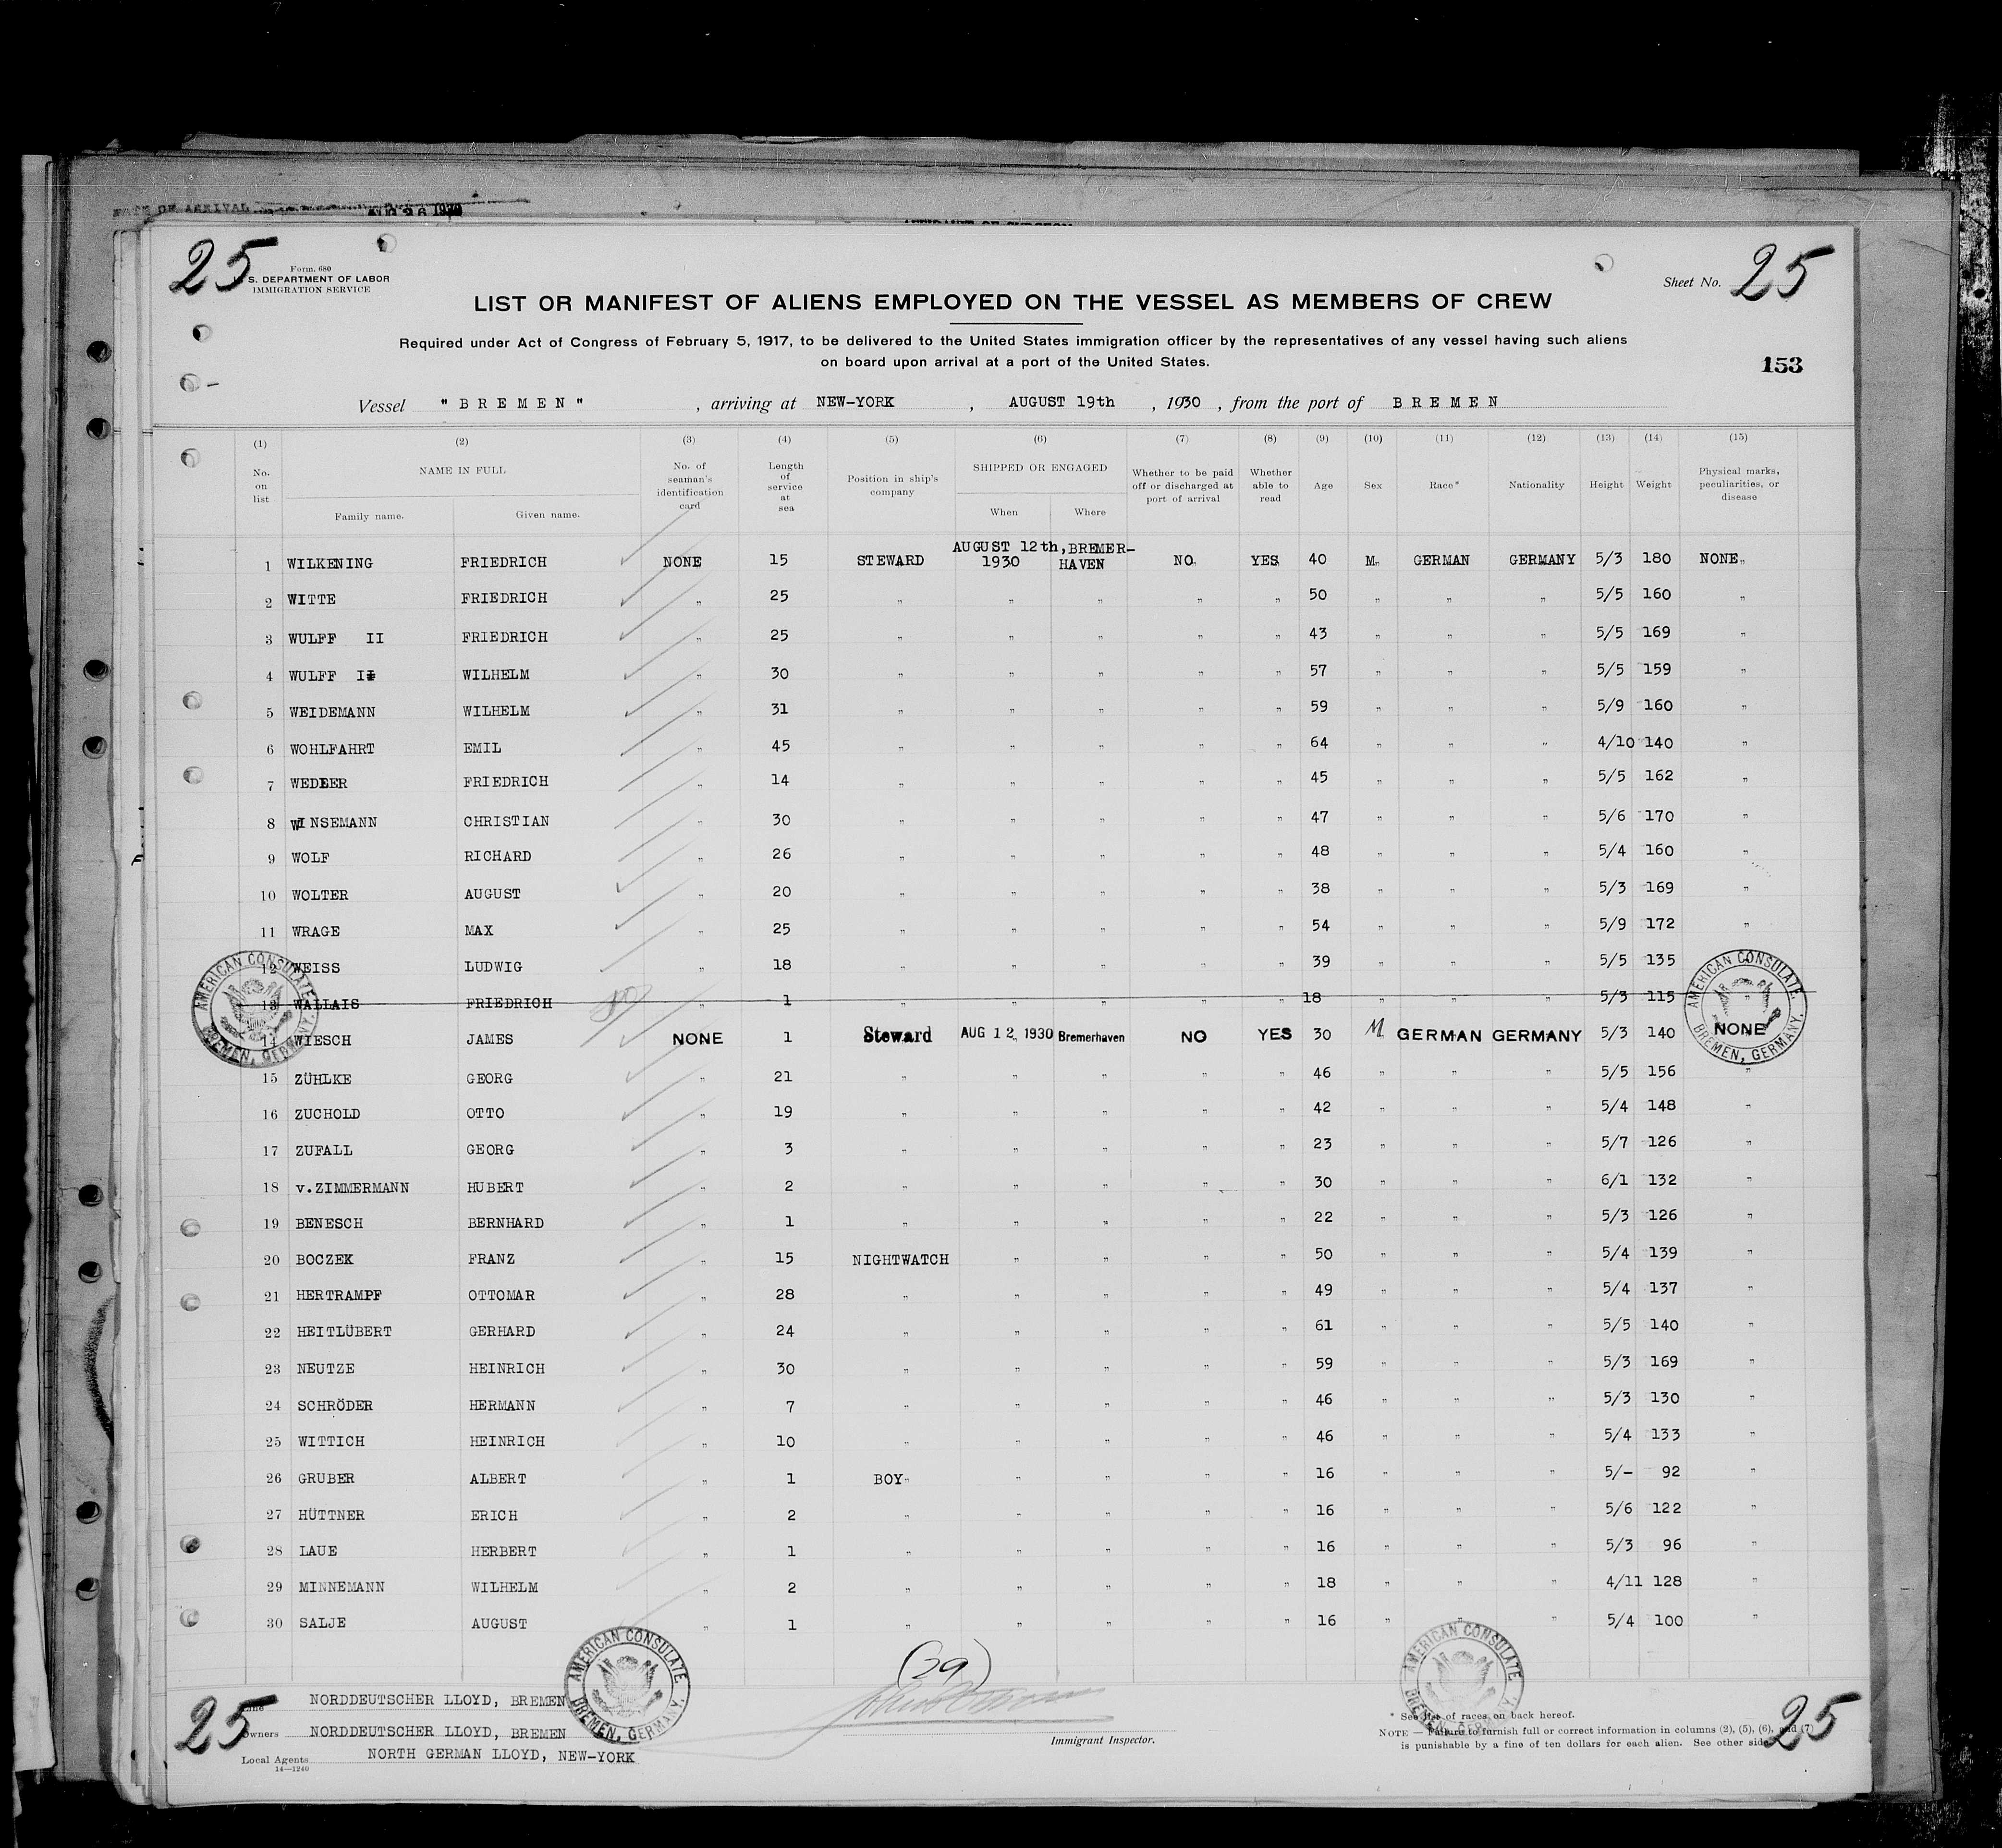 DATE OF ARRIVAL AUG 26 1930
25
Form. 680
S. DEPARTMENT OF LABOR
IMMIGRATION SERVICE
Sheet No. 25
LIST OR MANIFEST OF ALIENS EMPLOYED ON THE VESSEL AS MEMBERS OF CREW
Required under Act of Congress of February 5, 1917, to be delivered to the United States immigration officer by the representatives of any vessel having such aliens
on board upon arrival at a port of the United States.
153
Vessel "BREMEN", arriving at NEW-YORK, AUGUST 19th, 1930, from the port of BREMEN
(1) (2) (3) (4) (5) (6) (7) (8) (9) (10) (11) (12) (13) (14) (15)
No. on list NAME IN FULL Family name. Given name. No. of seaman's identification card Length of service at sea Position in ship's company SHIPPED OR ENGAGED When Where Whether to be paid off or discharged at port of arrival Whether able to read Age Sex Race* Nationality Height Weight Physical marks, peculiarities, or disease
1 WILKENING FRIEDRICH NONE 15 STEWARD AUGUST 12th, 1930 BREMER-HAVEN NO YES 40 M. GERMAN GERMANY 5/3 180 NONE
2 WITTE FRIEDRICH " 25 " " " " " 50 " " " 5/5 160 "
3 WULFF II FRIEDRICH " 25 " " " " " 43 " " " 5/5 169 "
4 WULFF I WILHELM " 30 " " " " " 57 " " " 5/5 159 "
5 WEIDEMANN WILHELM " 31 " " " " " 59 " " " 5/9 160 "
6 WOHLFAHRT EMIL " 45 " " " " " 64 " " " 4/10 140 "
7 FRIEDRICH " 14 " " " " " 45 " " " 5/5 162 "
8 WINSEMANN CHRISTIAN " 30 " " " " " 47 " " " 5/6 170 "
9 WOLF RICHARD " 26 " " " " " 48 " " " 5/4 160 "
10 WOLTER AUGUST " 20 " " " " " 38 " " " 5/3 169 "
11 WRAGE MAX " 25 " " " " " 54 " " " 5/9 172 "
12 WEISS LUDWIG " 18 " " " " " 39 " " " 5/5 135 "
13 WALLAIS FRIEDRICH " 1 " " " " " 18 " " " 5/3 115 "
14 WIESCH JAMES NONE 1 Steward AUG 12 1930 Bremerhaven NO YES 30 M GERMAN GERMANY 5/3 140 NONE
15 ZÜHLKE GEORG " 21 " " " " " 46 " " " 5/5 156 "
16 ZUCHOLD OTTO " 19 " " " " " 42 " " " 5/4 148 "
17 ZUFALL GEORG " 3 " " " " " 23 " " " 5/7 126 "
18 v.ZIMMERMANN HUBERT " 2 " " " " " 30 " " " 6/1 132 "
19 BENESCH BERNHARD " 1 " " " " " 22 " " " 5/3 126 "
20 BOCZEK FRANZ " 15 NIGHTWATCH " " " " 50 " " " 5/4 139 "
21 HERTRAMPF OTTOMAR " 28 " " " " " 49 " " " 5/4 137 "
22 HEITLÜBERT GERHARD " 24 " " " " " 61 " " " 5/5 140 "
23 NEUTZE HEINRICH " 30 " " " " " 59 " " " 5/3 169 "
24 SCHRÖDER HERMANN " 7 " " " " " 46 " " " 5/3 130 "
25 WITTICH HEINRICH " 10 " " " " " 46 " " " 5/4 133 "
26 GRUBER ALBERT " 1 BOY " " " " 16 " " " 5/- 92 "
27 HÜTTNER ERICH " 2 " " " " " 16 " " " 5/6 122 "
28 LAUE HERBERT " 1 " " " " " 16 " " " 5/3 96 "
29 MINNEMANN WILHELM " 2 " " " " " 18 " " " 4/11 128 "
30 SALJE AUGUST " 1 " " " " " 16 " " " 5/4 100 "
AMERICAN CONSULATE, BREMEN, GERMANY.
AMERICAN CONSULATE, BREMEN, GERMANY.
AMERICAN CONSULATE, BREMEN, GERMANY.
AMERICAN CONSULATE, BREMEN, GERMANY.
(29)
25
Line NORDDEUTSCHER LLOYD, BREMEN
Owners NORDDEUTSCHER LLOYD, BREMEN
Local Agents NORTH GERMAN LLOYD, NEW-YORK
14—1240
Immigrant Inspector.
* See list of races on back hereof.
NOTE — Failure to furnish full or correct information in columns (2), (5), (6), and (7)
is punishable by a fine of ten dollars for each alien. See other side
25